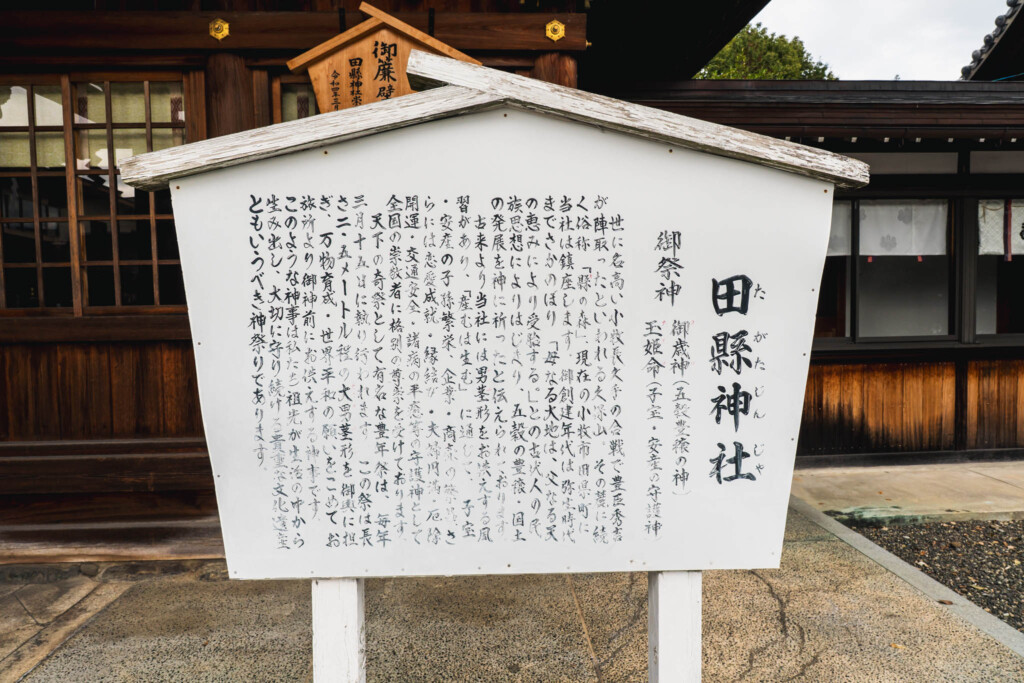 田縣神社
たがたじんじゃ
御祭神
御歳神(五穀豊穣の神)
玉姫命(子宝・安産の守護神)
世に名高い小牧長久手の合戦で豊臣秀吉
が陣取ったといわれる久保山。その麓に続
く俗称「縣の森」、現在の小牧市田県町に
当社は鎮座します。御創建年代は弥生時代
までさかのぼり、「母なる大地は、父なる天
の恵みにより受胎する。」との古代人の民
族思想によりはじまり、五穀の豊穣・国土
の発展を神に祈ったと伝えられております。
古来より当社には男茎形をお供えする風
習があり、「産むは生む」に通じて、子宝
・安産の子孫繁栄、企業・商売の繁昌、さ
らには恋愛成就・縁結び・夫婦円満・厄除
開運・交通安全・諸病の平癒等の守護神として
全国の崇敬者に格別の尊崇を受けております。
天下の奇祭として有名な豊年祭は、毎年
三月十五日に執り行われます。この祭は長
さ二・五メートル程の大男茎形を御輿に担
ぎ、万物育成・世界平和の願いをこめてお
旅所より御神前にお供えする神事です。
このような神事は私たち祖先が生活の中から
生み出し、大切に守り続ける貴重な文化遺産
ともいうべき神祭りであります。
御簾
田縣神社
令和